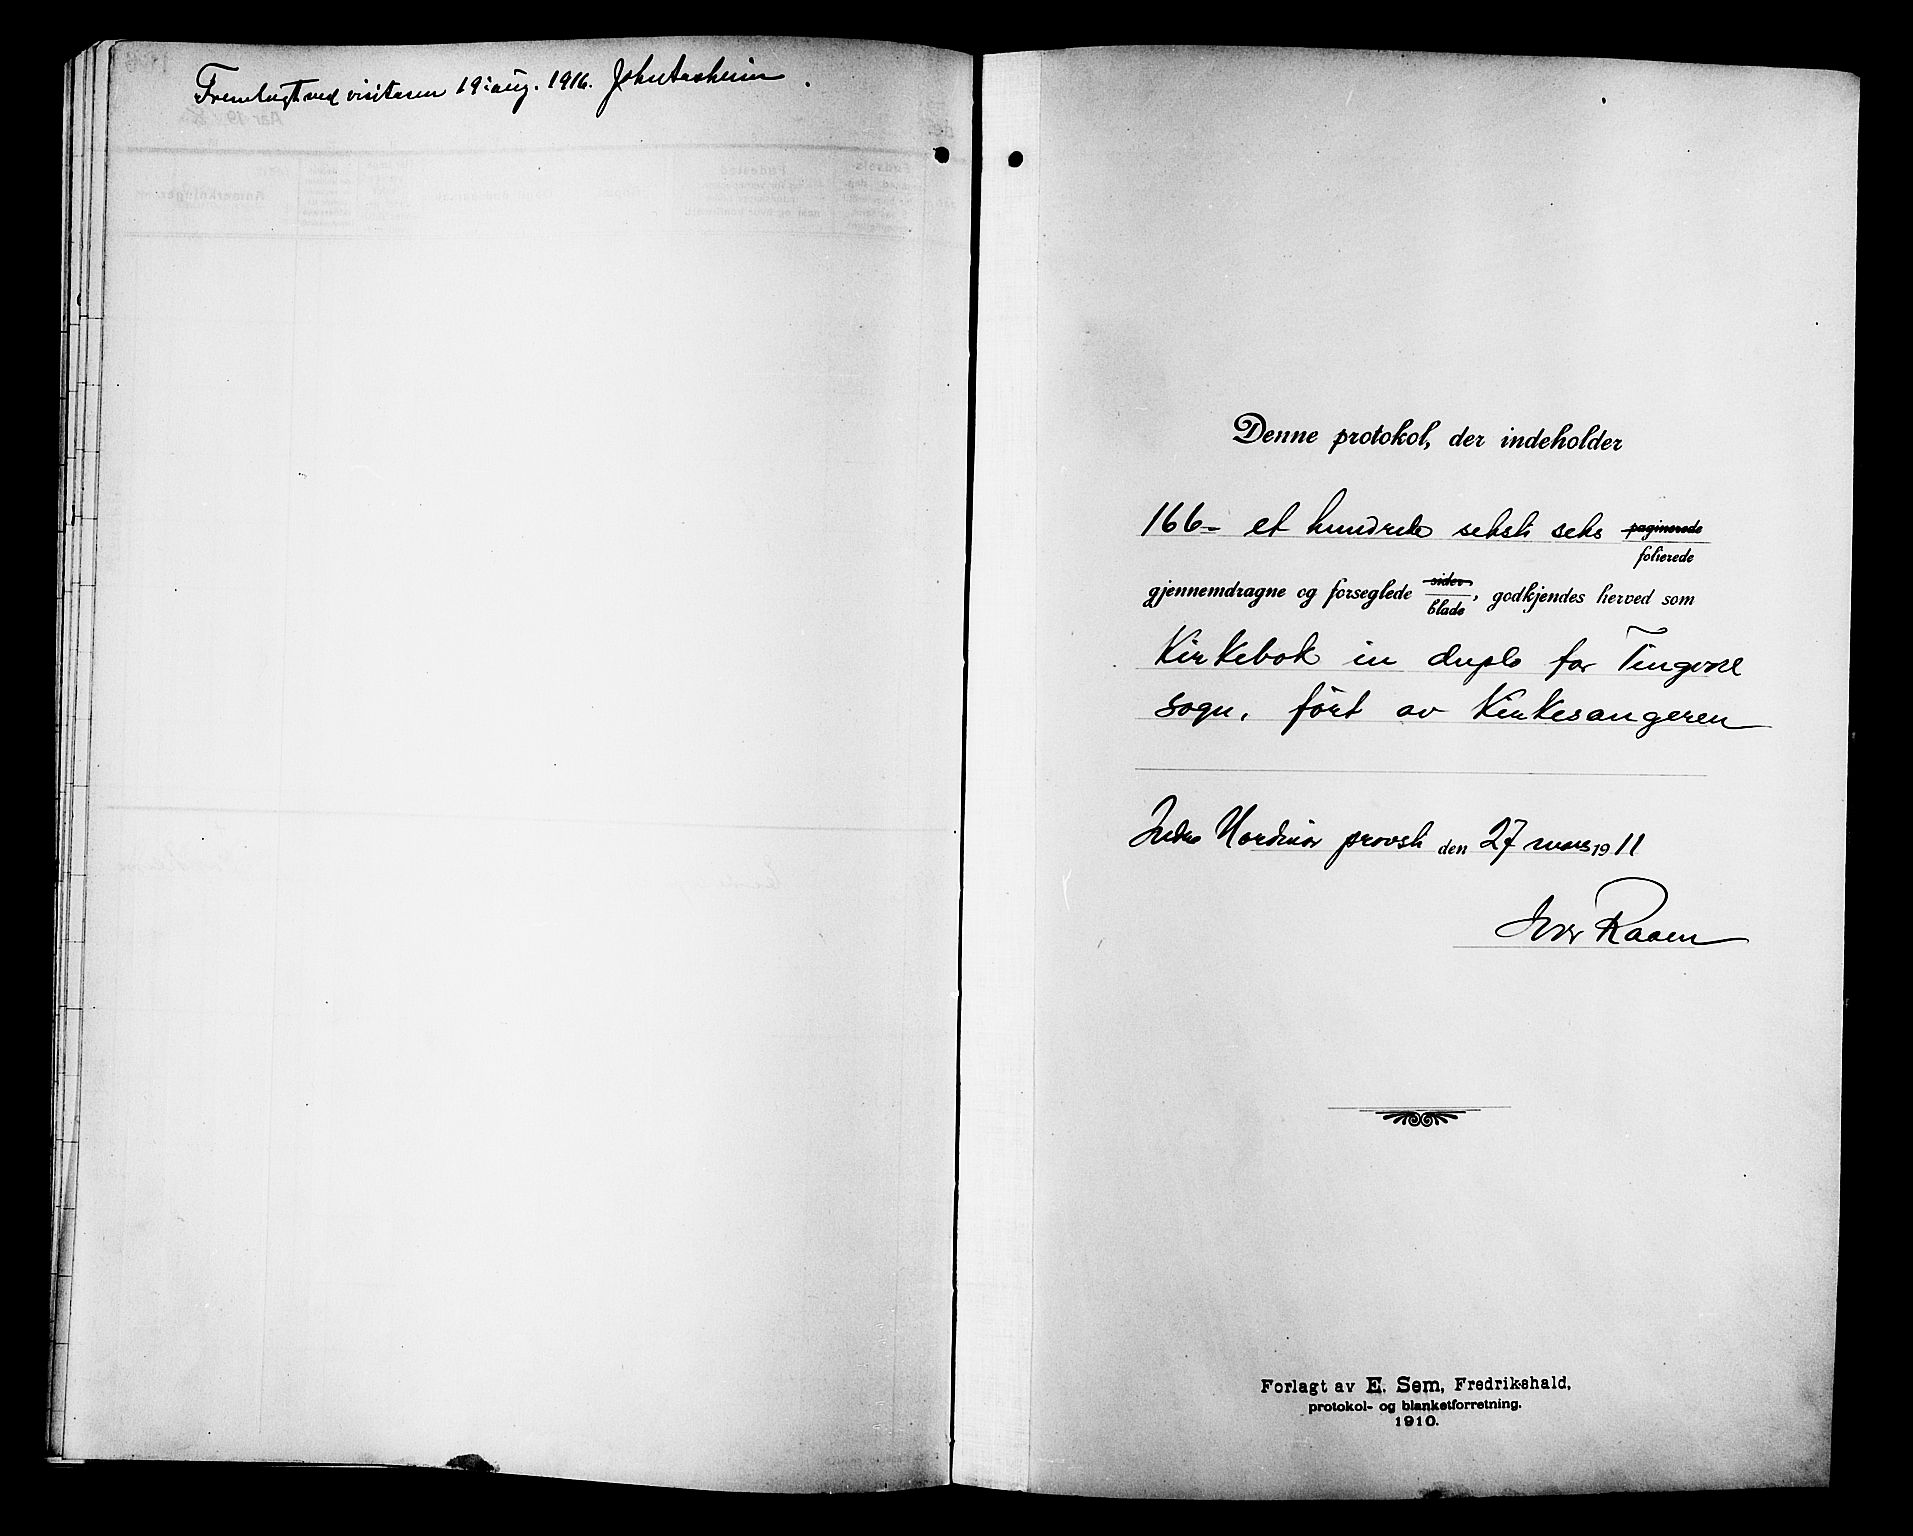 Fremlagt ved visitasen 19: aug. 1916. John Aasheim
Denne protokol, der indeholder
166 - et hundrede seksti seks paginerede
folierede
gjennemdragne og forseglede sider, godkjendes herved som
blade
Kirkebok in duplo for Tingvoll
sogn, ført av Kirkesangeren
Indre Nordmør provsti den 27 mars 1911
Iver Raaen
Forlagt av E. Sem, Fredrikshald,
protokol- og blanketforretning.
1910.